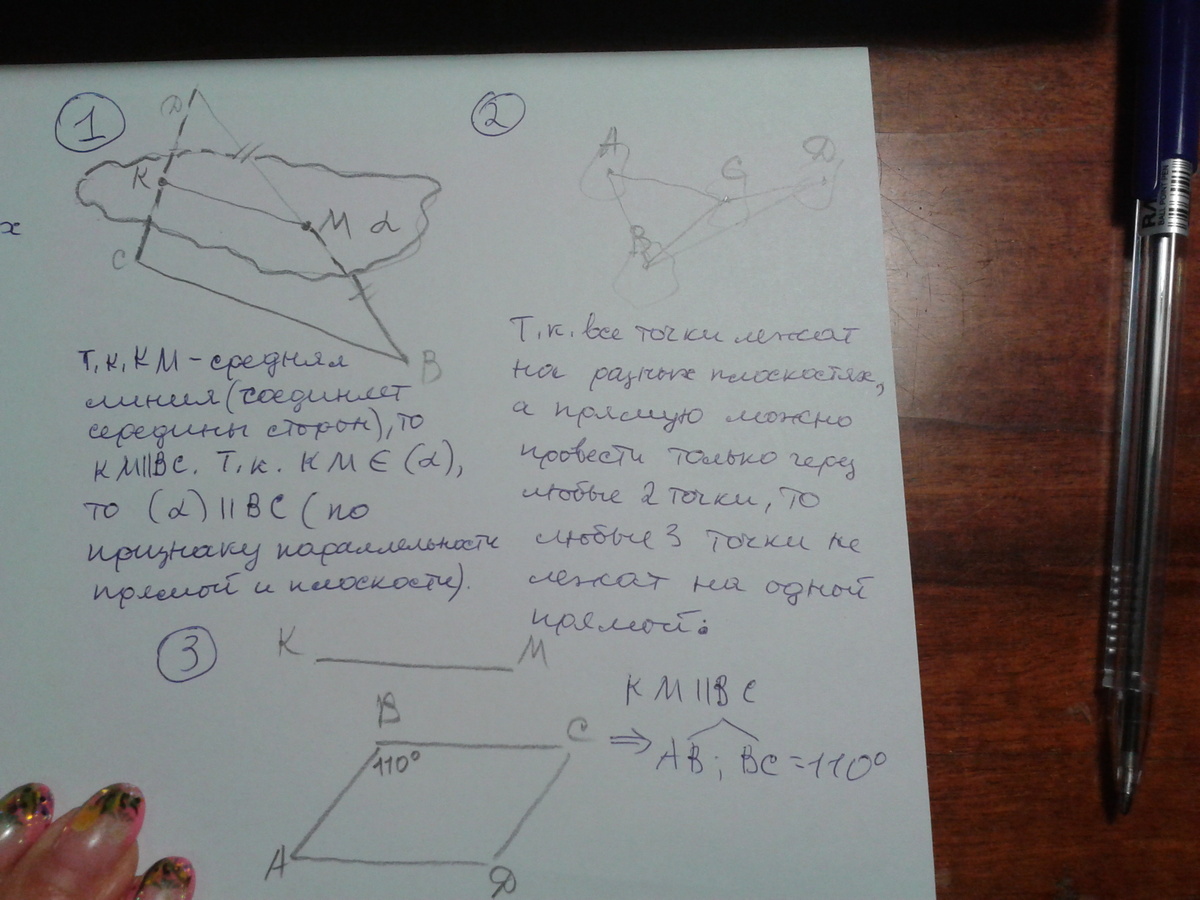 1
Д
К
М α
С
В
Т.к. КМ - средняя
линия (соединяет
середины сторон), то
КМ||ВС. Т.к. КМ Є (α),
то (α) || ВС (по
признаку параллельности
прямой и плоскости).
2
А
С
Д
В
Т.к. все точки лежат
на разных плоскостях,
а прямую можно
провести только через
любые 2 точки, то
любые 3 точки не
лежат на одной
прямой.
3
К М
В С
110°
А Д
КМ||ВС
⇒ АВ; ВС = 110°
х
BALL POINT PEN